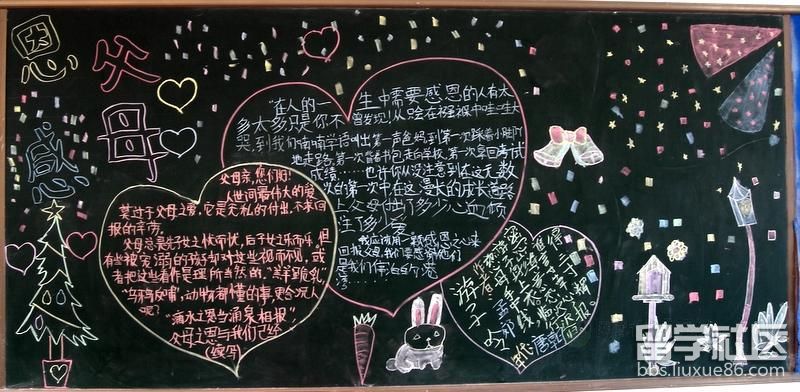 恩
父
母
感
"在人的一生中需要感恩的人有太
多太多只是你不曾发现!从呱呱在襁褓中哇哇大
哭,到我们喃喃学语叫出第一声爸妈到第一次踩着小脚丫
地走路,第一次背着书包走向学校,第一次拿回考试
成绩……也许你从没注意到在这无数
次的第一次中在这漫长的成长道路
上父母付了多少心血倾
注了多少爱
我应该用一颗感恩之心来
回报父母,我们要感谢他们
是我们停泊的港
湾……
父母亲,您们好!
人世间最伟大的爱
莫过于父母之爱,它是无私的付出,不求回
报的辛劳。
父母总是先子女之忧而忧,后子女之乐而乐,但
有些被宠溺的孩子却对这些视而不见,或
者把这些看作是理所当然的,"羔羊跪乳"
"乌鸦反哺",动物都懂的事,更合况人
呢?
"滴水之恩当涌泉相报"
父母之恩与我们已经
(续写)
游子吟
孟郊
留学社区
bbs.liuxue86.com